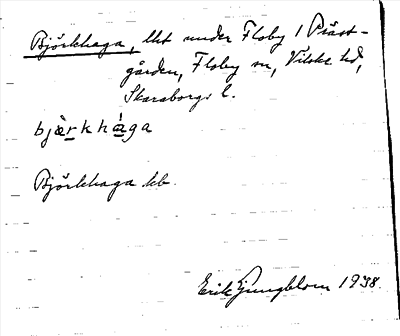 Björkhaga, lht under Floby 1 Präst-
gården, Floby sn, Vilske hd,
Skaraborgs l.
bjæ̀rkhága
Björkhaga kb.
Erik Ljungblom 1938.